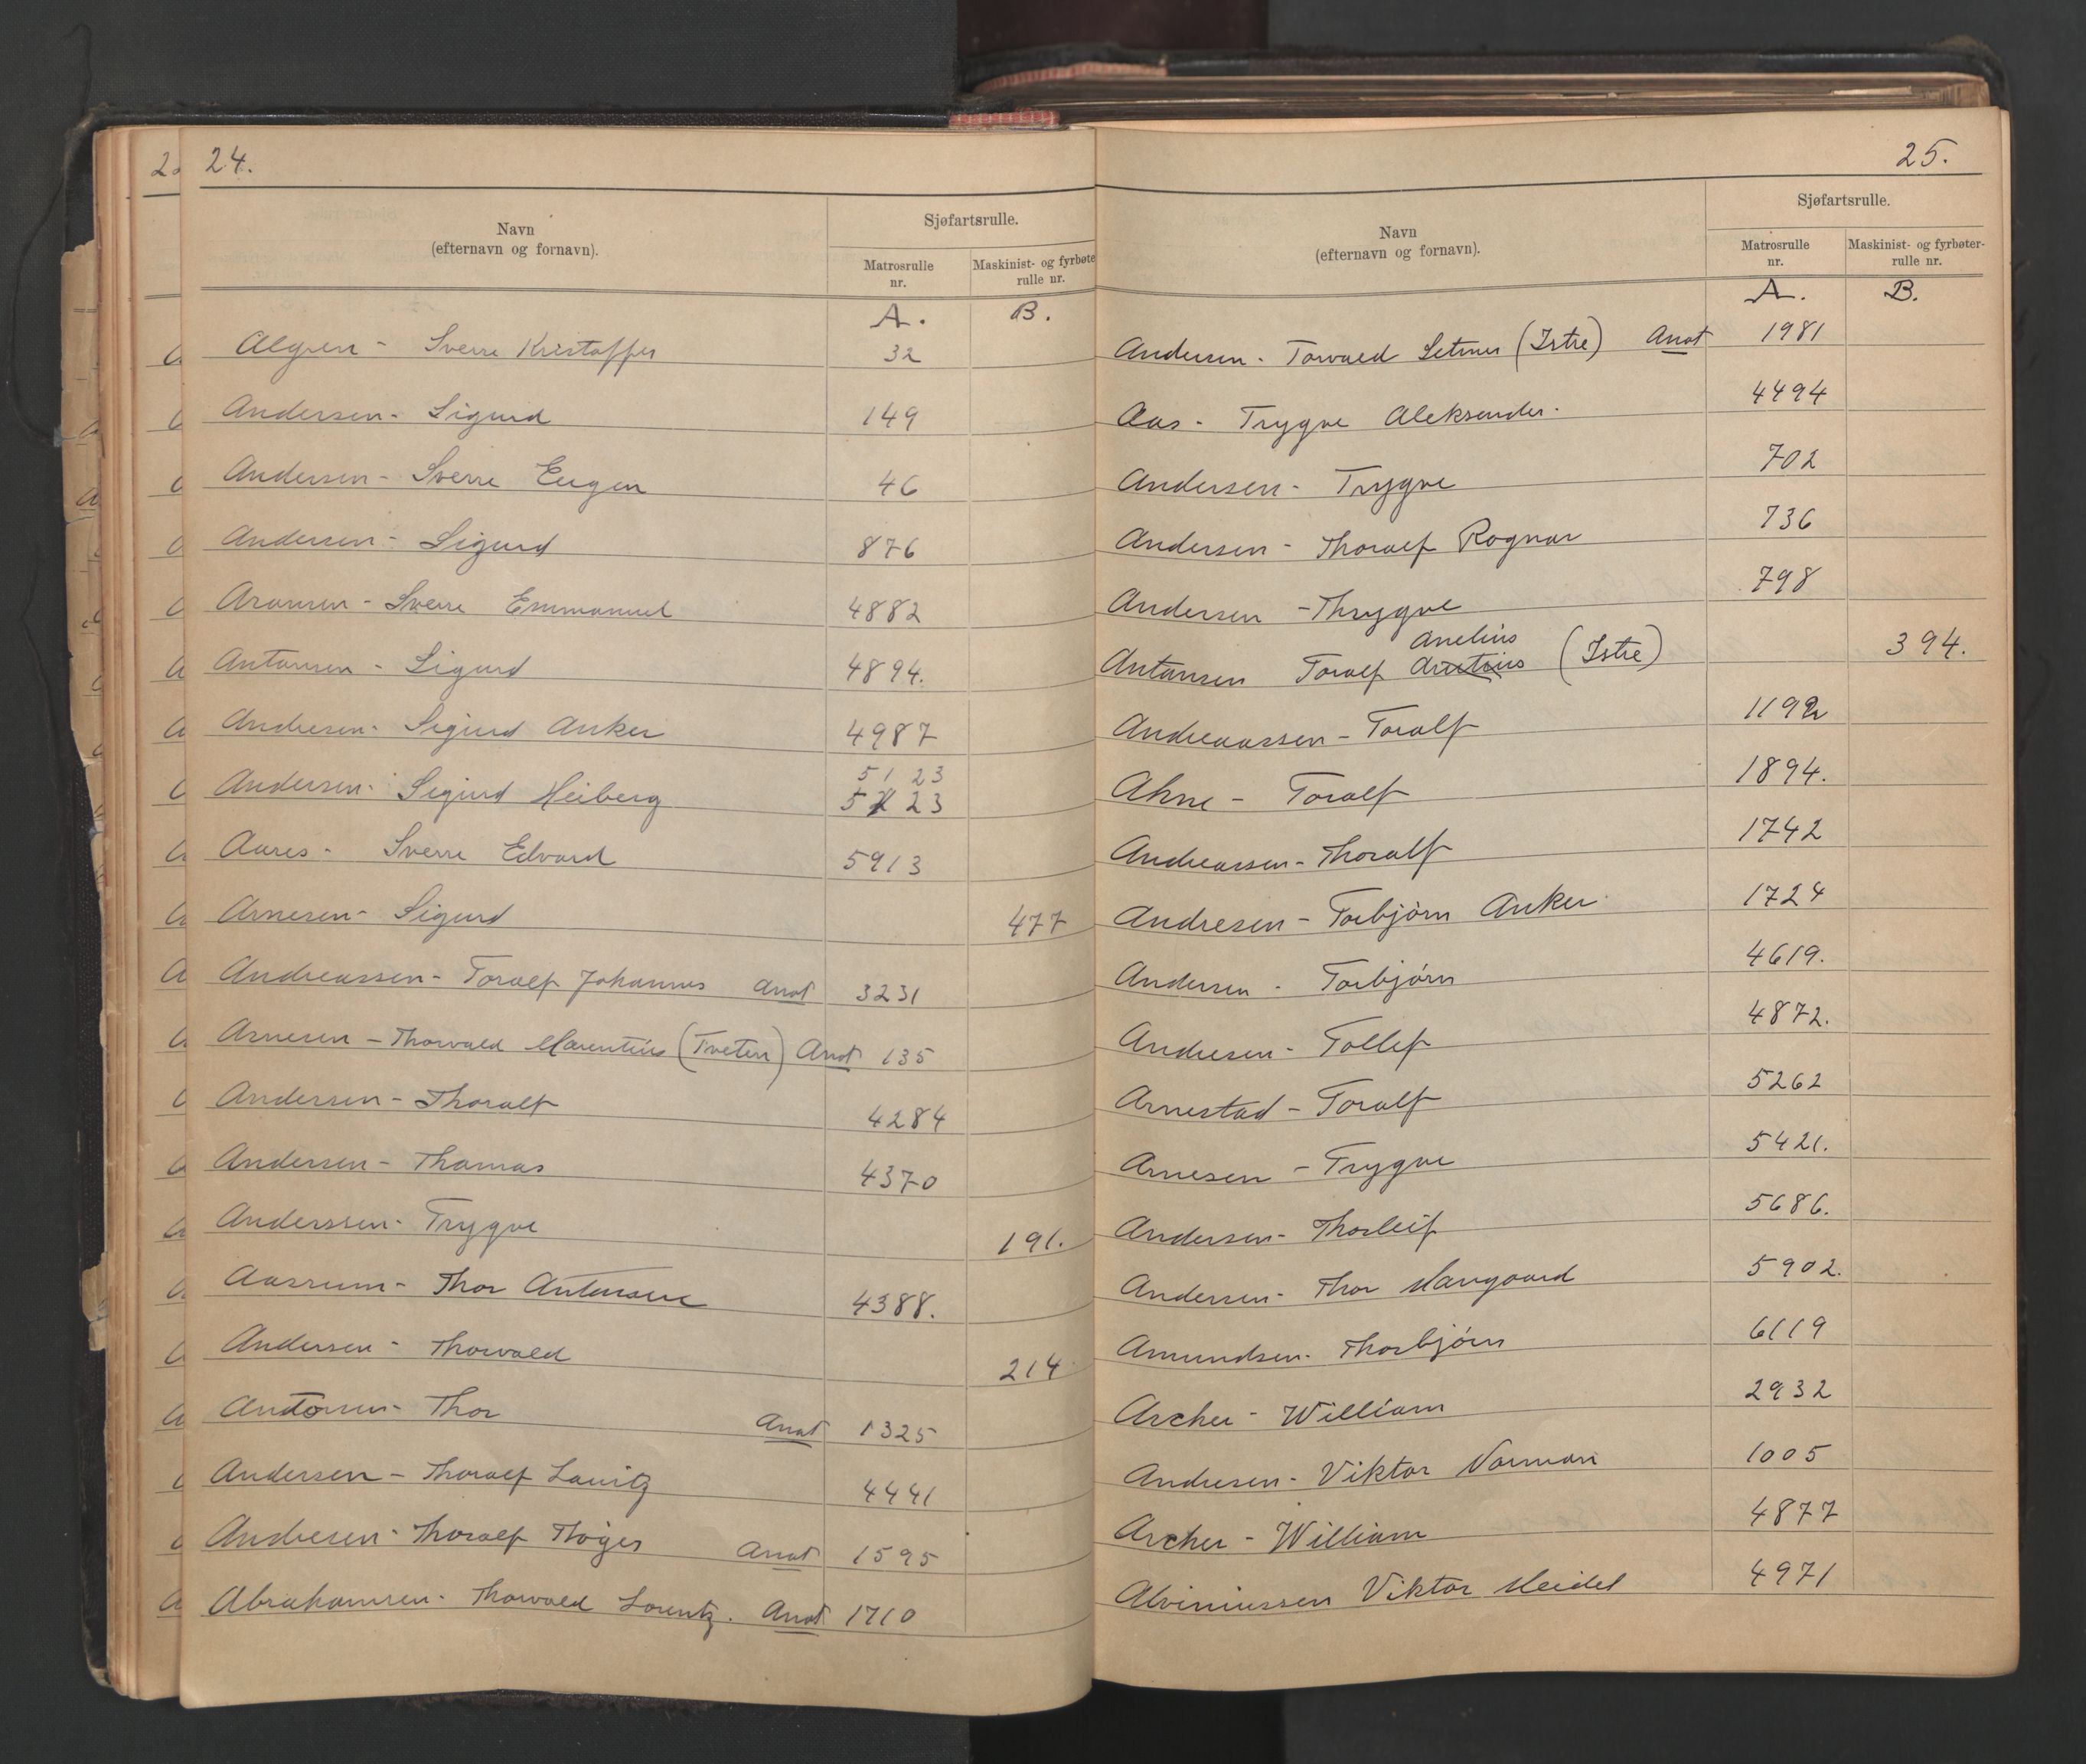 24.
Navn
(efternavn og fornavn).
Sjøfartsrulle.
Matrosrulle
nr.
Maskinist- og fyrbøte
rulle nr.
A. B.
Algren - Sverre Kristoffer 32
Andersen - Sigurd 149
Andersen - Sverre Eugen 46
Andersen - Sigurd 876
Aronsen - Sverre Emmanuel 4882
Antonsen - Sigurd 4894.
Andresen - Sigurd Anker 4987
5123
Andersen - Sigurd Heiberg 5223
Aares - Sverre Edvard 5913
Arnesen - Sigurd 477
Andreassen - Toralf Johannes Anot 3231
Arnesen - Thorvald Marentius (Tveten) Anot 135
Andersen - Thoralf 4284
Andersen - Thomas 4370
Anderssen - Trygve 191.
Aasrum - Thor Antonsen 4388.
Andersen - Thorvald 214
Antonsen - Thor Anot 1325
Andersen - Thoralf Lauritz 4441
Andresen - Thoralf Thøger Anot 1595
Abrahamsen - Thorvald Lorentz. Anot 1710
25.
Navn
(efternavn og fornavn).
Sjøfartsrulle.
Matrosrulle
nr.
Maskinist- og fyrbøter-
rulle nr.
A. B.
Andersen - Torvald (Istre) Anot 1981
Aas - Trygve Aleksander. 4494
Andersen - Trygve 702
Andersen - Thoralf Ragnar 736
Andersen - Thrygve 798
Anelius
Antonsen Toralf (Istre) 394.
Andreaassen - Toralf 1192
Ahne - Toralf 1894.
Andreassen - Thoralf 1742
Andresen - Torbjørn Anker 1724
Andersen - Torbjørn 4619.
Andresen - Tollef 4872.
Arnestad - Toralf 5262
Arnesen - Trygve 5421.
Andersen - Thorleif 5686.
Andersen - Thor Havgaard 5902.
Amundsen - Thorbjørn 6119
Archer - William 2932
Andresen - Viktor Norman 1005
Archer - William 4877
Alviniussen Viktor Heidel 4971